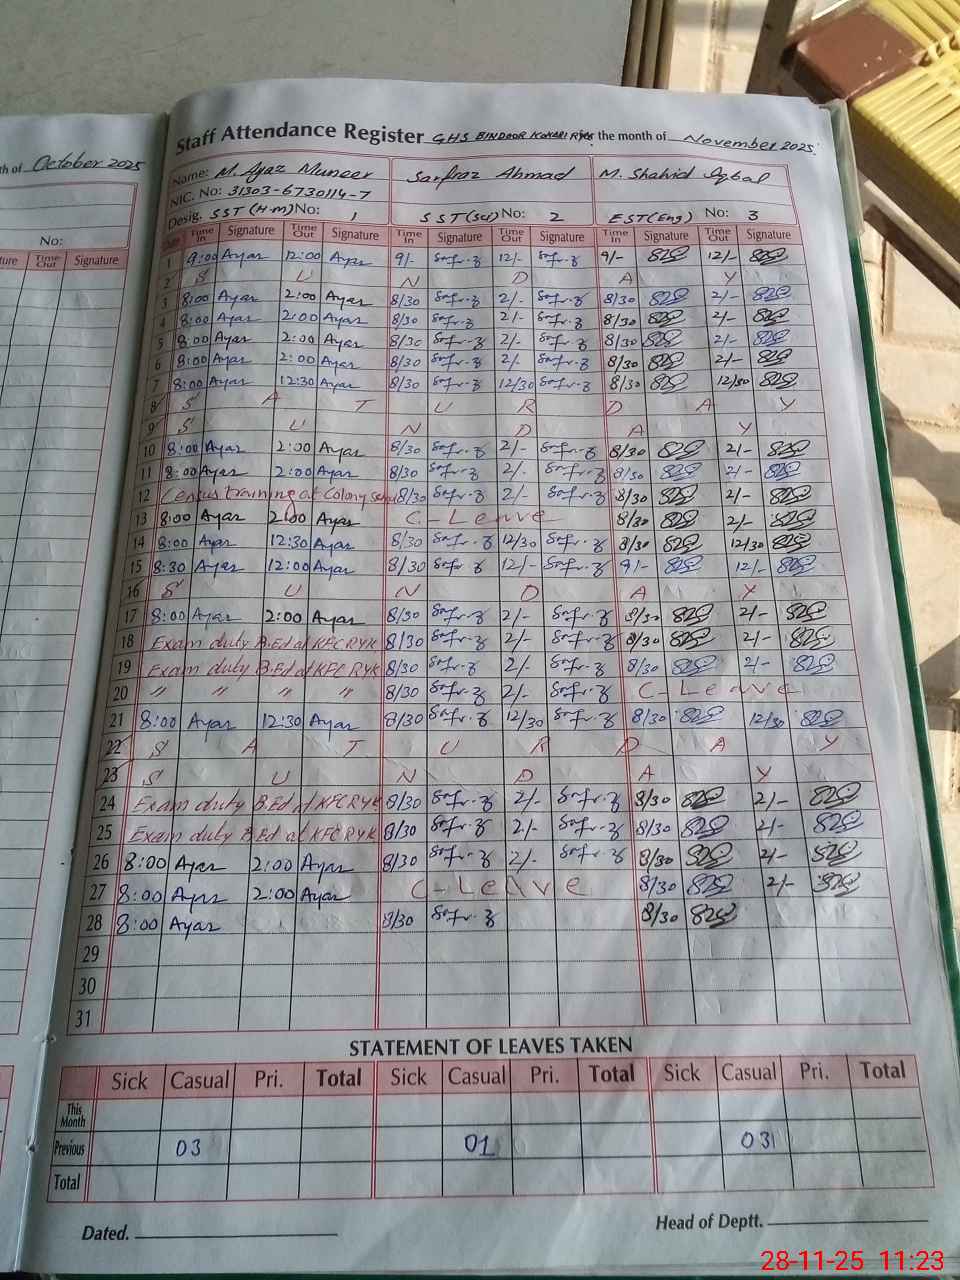 th of October 2025
No:
ture Time Out Signature
Staff Attendance Register GHS BINDOOR the month of November 2025
Name: M. Ayaz Muneer Sarfraz Ahmad M. Shahid Iqbal
NIC. No: 31303-6730114-7
Desig. SST (H.m) No: 1 SST (Sci) No: 2 EST (Eng) No: 3
Time In Signature Time Out Signature Time In Signature Time Out Signature Time In Signature Time Out Signature
1 9:00 Ayaz 12:00 Ayaz 9/- 12/- 9/- 12/-
2 S U N D A Y
3 8:00 Ayaz 2:00 Ayaz 8/30 2/- 8/30 2/-
4 8:00 Ayaz 2:00 Ayaz 8/30 2/- 8/30 2/-
5 8:00 Ayaz 2:00 Ayaz 8/30 2/- 8/30 2/-
6 8:00 Ayaz 2:00 Ayaz 8/30 2/- 8/30 2/-
7 8:00 Ayaz 12:30 Ayaz 8/30 12/30 8/30 12/30
8 S A T U R D A Y
9 S U N D A Y
10 8:00 Ayaz 2:00 Ayaz 8/30 2/- 8/30 2/-
11 8:00 Ayaz 2:00 Ayaz 8/30 2/- 8/30 2/-
12 Census training at Colony 8/30 2/- 8/30 2/-
13 8:00 Ayaz 2:00 Ayaz C-Leave 8/30 2/-
14 8:00 Ayaz 12:30 Ayaz 8/30 12/30 8/30 12/30
15 8:30 Ayaz 12:00 Ayaz 8/30 12/- 9/- 12/-
16 S U N D A Y
17 8:00 Ayaz 2:00 Ayaz 8/30 2/- 8/30 2/-
18 Exam duty B.Ed at KFC RYK 8/30 2/- 8/30 2/-
19 Exam duty B.Ed at KFC RYK 8/30 2/- 8/30 2/-
20 " " " " 8/30 2/- C-Leave
21 8:00 Ayaz 12:30 Ayaz 8/30 12/30 8/30 12/30
22 S A T U R D A Y
23 S U N D A Y
24 Exam duty B.Ed at KFC RYK 8/30 2/- 8/30 2/-
25 Exam duty B.Ed at KFC RYK 8/30 2/- 8/30 2/-
26 8:00 Ayaz 2:00 Ayaz 8/30 2/- 8/30 2/-
27 8:00 Ayaz 2:00 Ayaz C-Leave 8/30 2/-
28 8:00 Ayaz 8/30 8/30
29
30
31
STATEMENT OF LEAVES TAKEN
Sick Casual Pri. Total Sick Casual Pri. Total Sick Casual Pri. Total
This Month
Previous 03 01 03
Total
Dated. Head of Deptt.
28-11-25 11:23